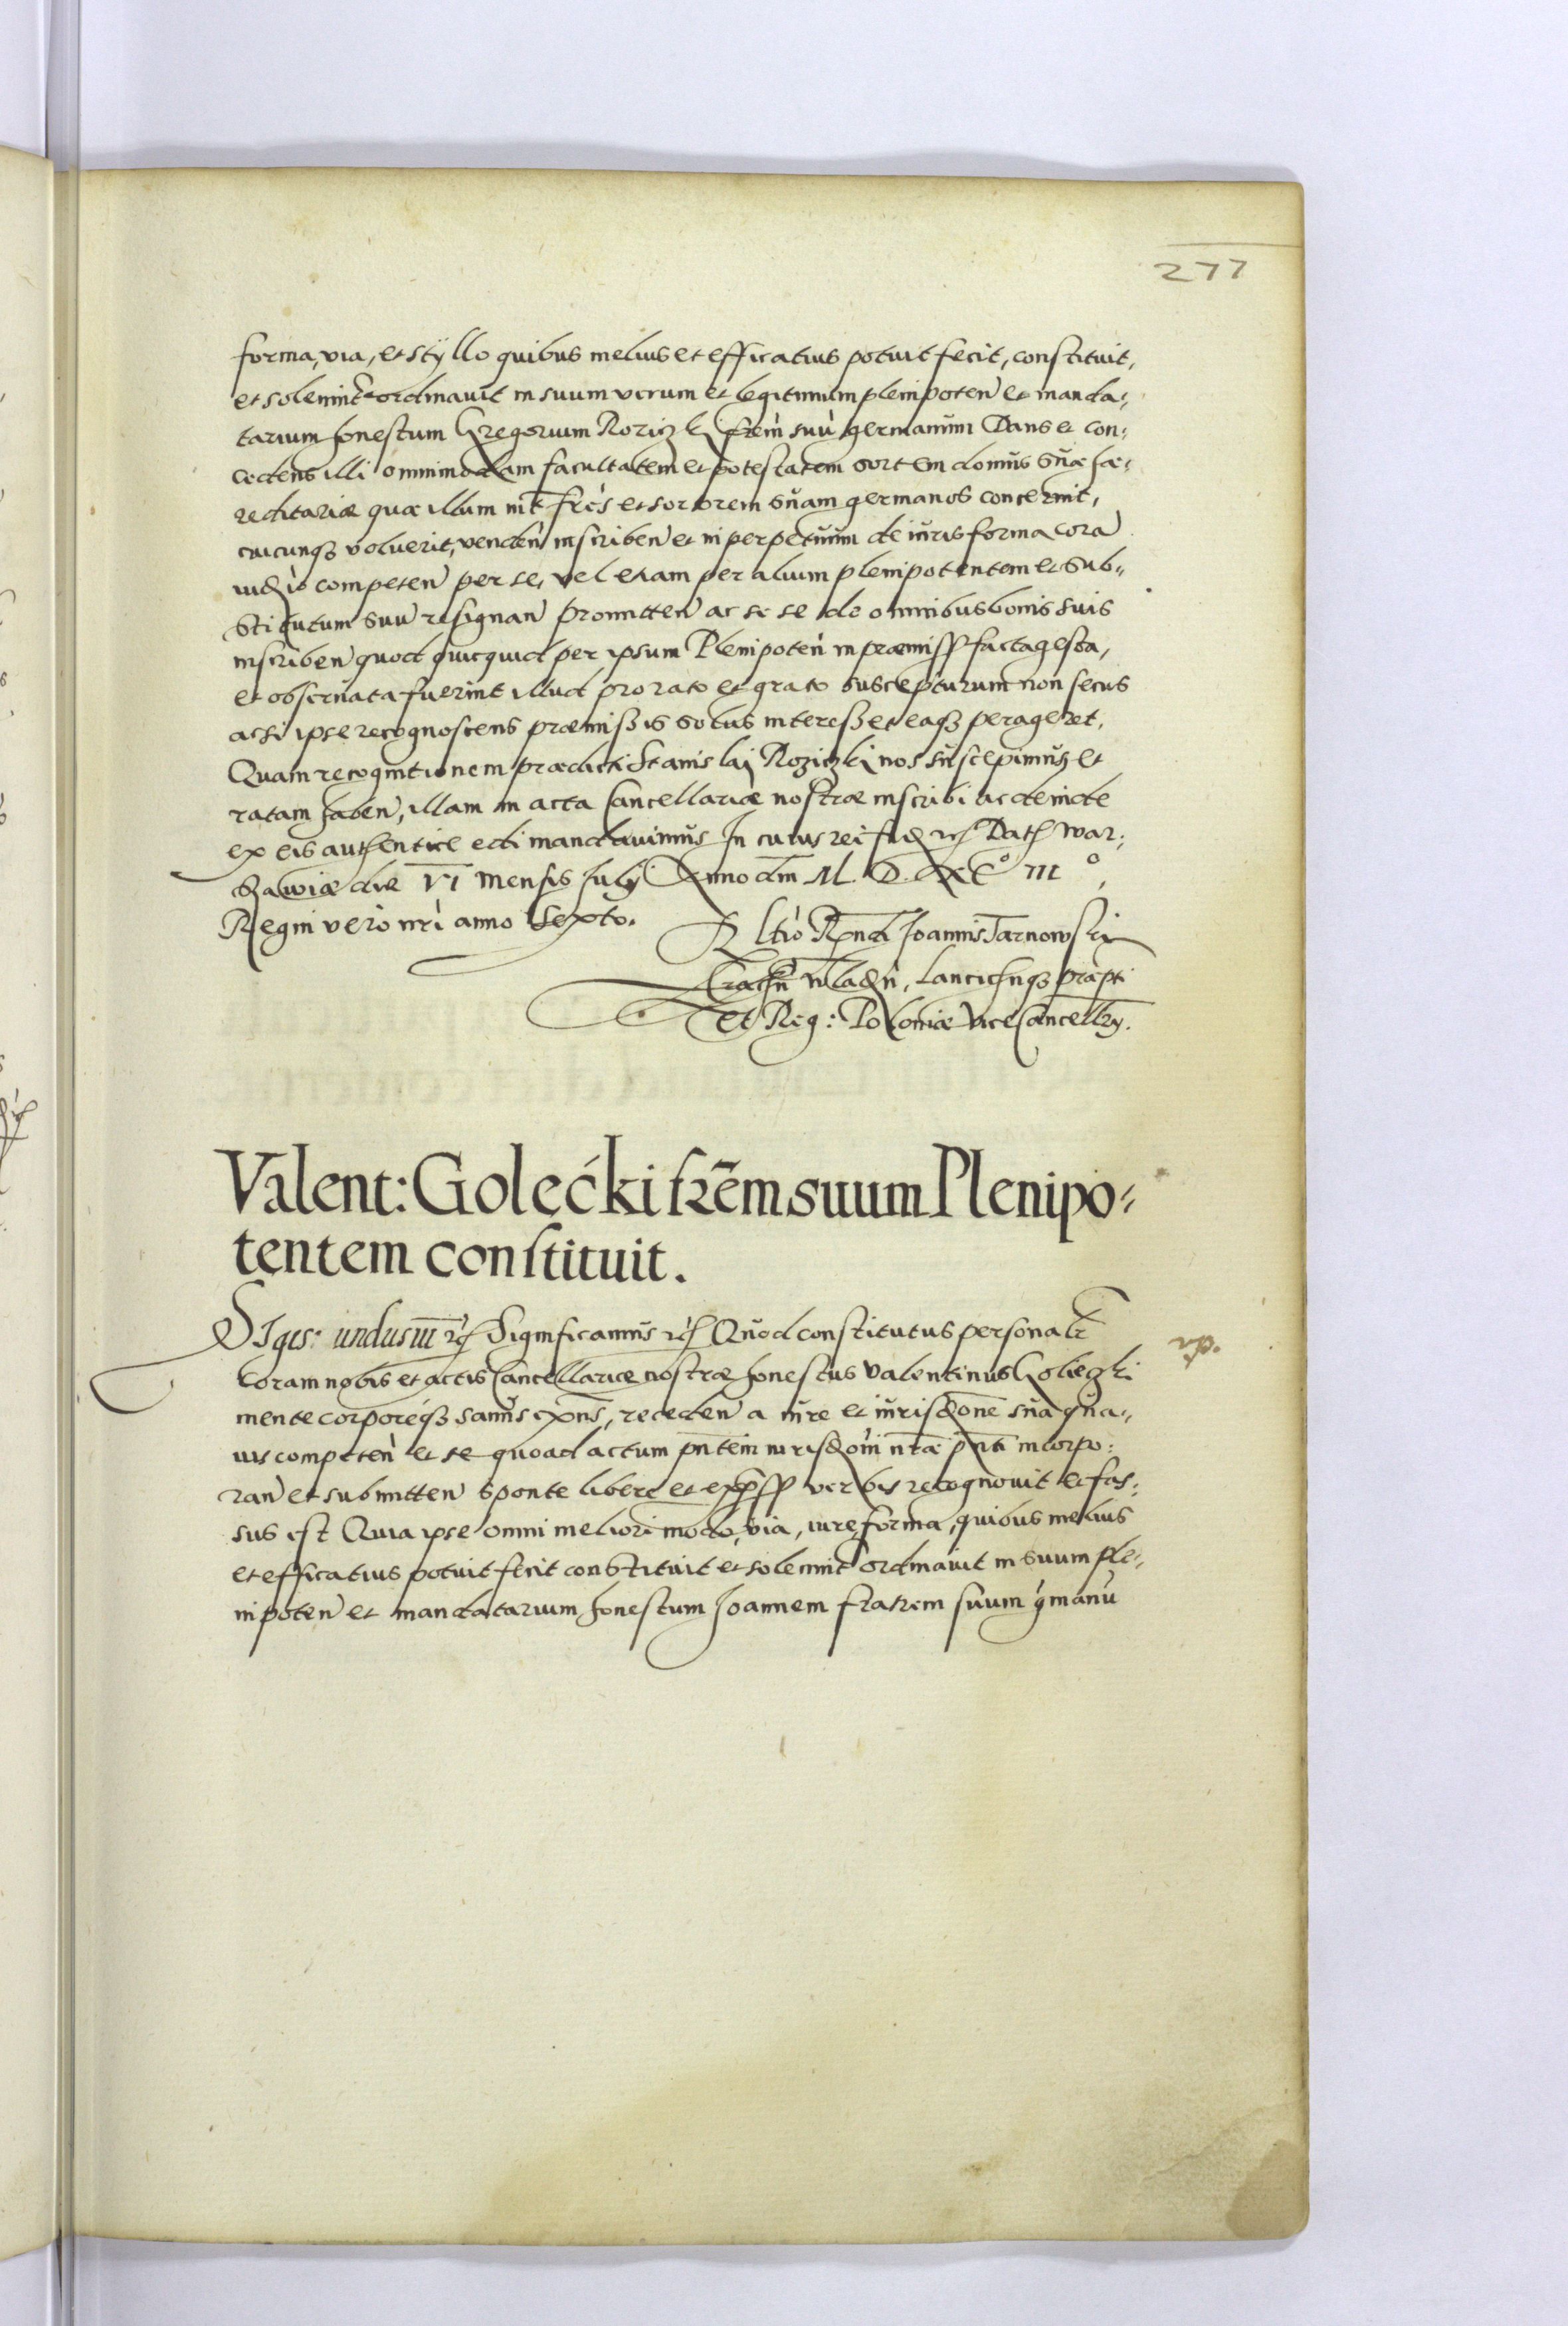 277
forma, via, et styllo quibus melius et efficatius potuit fecit, constituit,
et solennit̃ ordinavit in suum verum et legitimum plenipoten̄ et manda-
tarium honestum Gregorium Roziczki frēm suū germanum Dans et con-
cedens illi omnimodam facultatem et potestatem sortem domus suæ hæ-
reditariæ quæ illum int̃ frēs et sororem suam germanos concernit,
cuicunqȝ voluerit, venden̄ inscriben̄ et in perpetuum de iuris forma corā
iudio competen̄ per se, vel etiam per alium plenipotentem et sub-
stitutum suū resignan̄ promitten̄ ac se se de omnibus bonis suis
inscriben̄ quod quicquid per ipsum Plenipoten̄ in præmiss facta gesta,
et observata fuerint illud pro rato et grato suscepturum non secus
ac si ipse recognoscens præmissis solus interesset eaqȝ perageret.
Quam recognitionem prædicti Stanislai Roziczki nos suscepimus et
ratam haben̄, illam in acta Cancellariæ nostræ inscribi ac deinde
ex eis authentice edi mandavimus In cuius rei fid etc Dat War-
saviæ die VI mensis July Anno dm̄ M. D. XCº IIIº,
Regni vero nr̄i anno sexto.
Rltio Rn̄di Joannis Tarnowski
Crac̄n̄ Wladn̄, Lancicnqȝ præpti
et Reg: Poloniæ ViceCancellry.
Valent: Golecki frēm suum Plenipo-
tentem constituit.
Sigis: undus III etc Significamus etc Quod constitutus personalr̄
coram nobis et actis Cancellariæ nostræ honestus Valentinus Goliegki
mente corporeqȝ sanus exn̄s, receden̄ a iure et iurisdone suā qua-
vis competen̄ et se quoad actum pn̄tem iurisdoni nr̄æ pn̄ti incorpo-
ran̄ et submitten̄ sponte libere et express verbis recognovit et fas-
sus est Quia ipse omni meliori modo, via, iure, forma, quibus melius
et efficatius potuit fecit constituit et solennit̃ ordinavit in suum ple-
nipoten̄ et mandatarium honestum Joannem fratrem suum gmanū